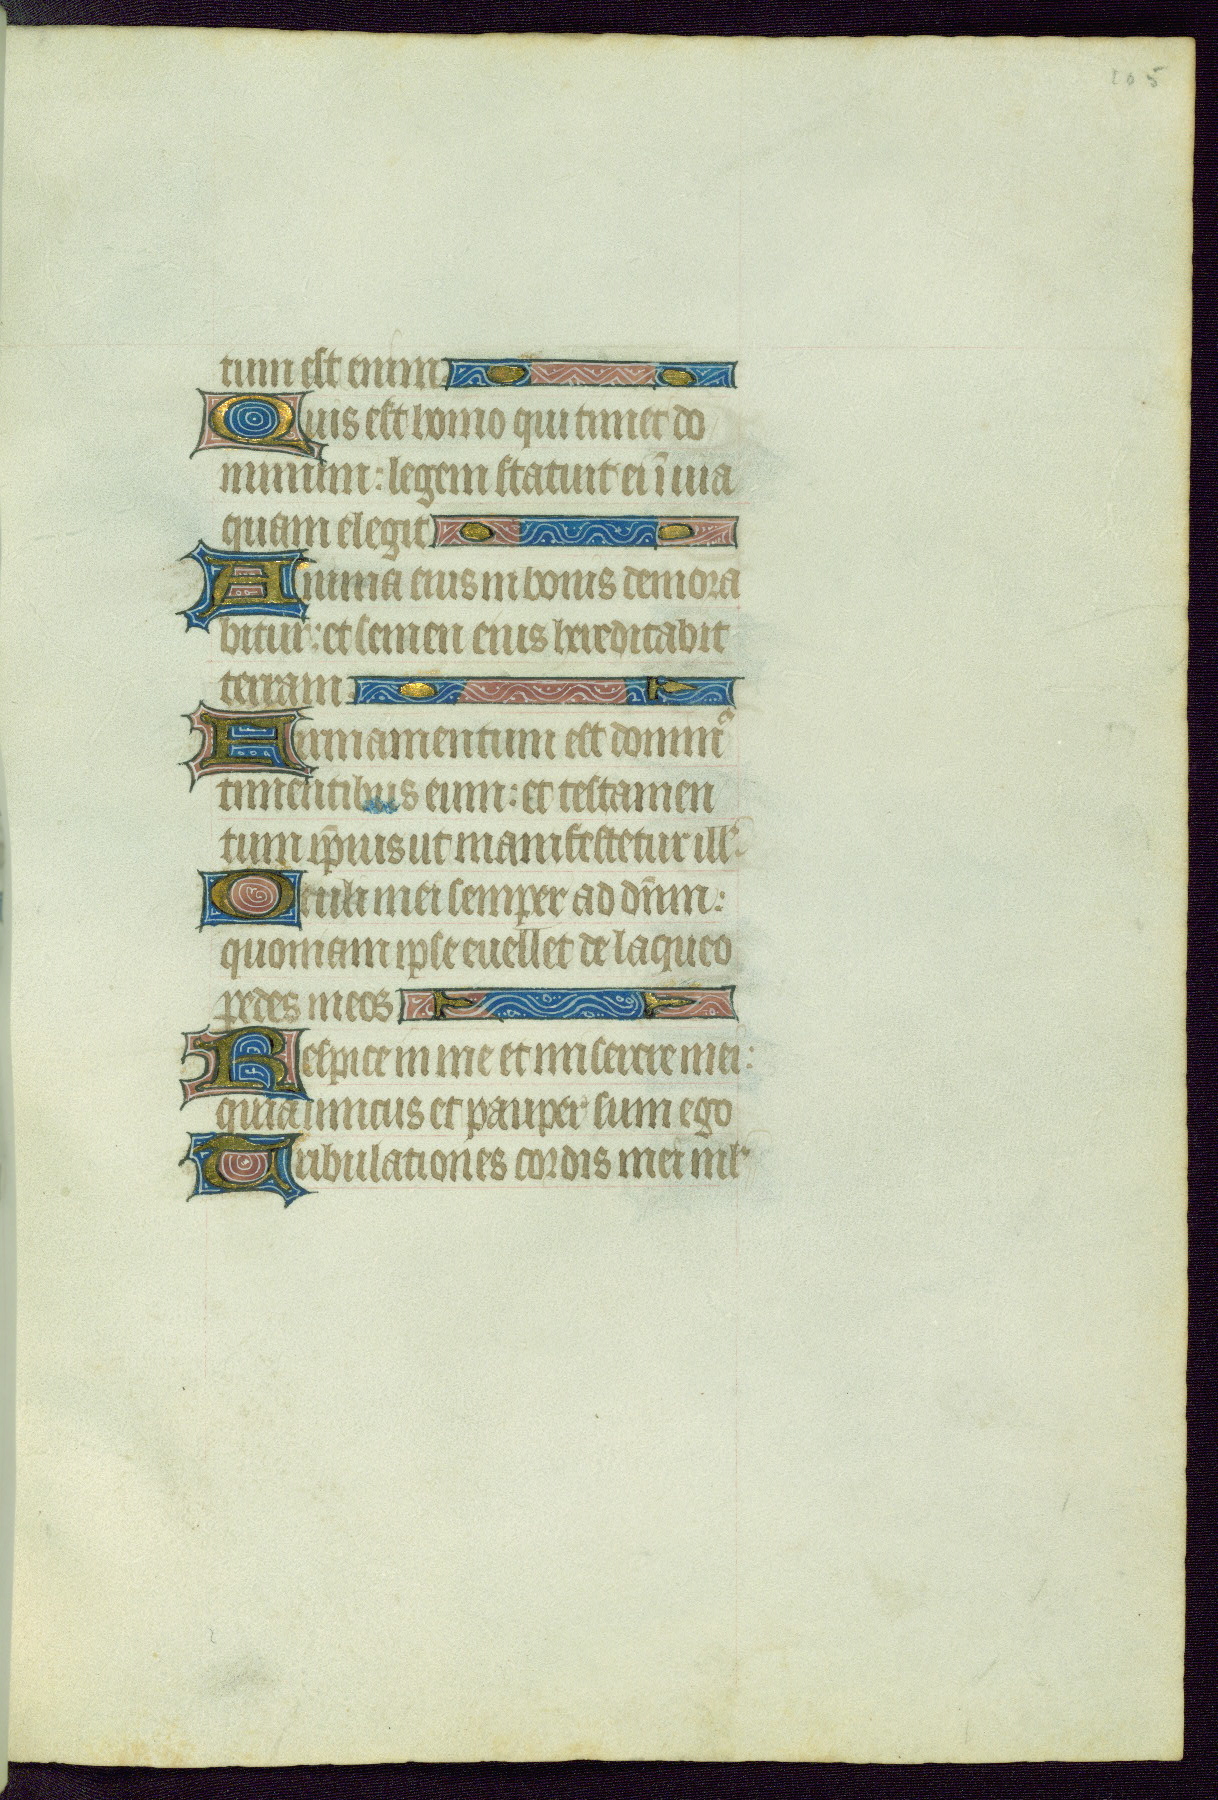 105
tum est enim
Quis est homo qui timet do
minum: legem statuit ei ī uia
quam elegit
Anima eius in bonis demora
bitur: et semen eius hereditabit
terram
Firmamentum est dominꝰ
timentibus eum: et testamen
tum ip̄ius ut manifestetur ill'
Oculi mei semper ad dn̄m:
quoniam ipse euellet de laqueo
pedes meos
Respice in me et miserere mei:
quia unicus et pauper sum ego
Tribulationes cordis mei ml'